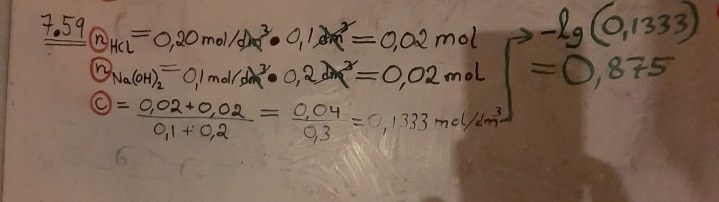 7.59 n HCl = 0,20 mol/dm³ • 0,1 dm³ = 0,02 mol
n Na(OH)₂ = 0,1 mol/dm³ • 0,2 dm³ = 0,02 mol
c = 0,02+0,02 / 0,1+0,2 = 0,04 / 0,3 = 0,1333 mol/dm³
→ -lg (0,1333)
= 0,875